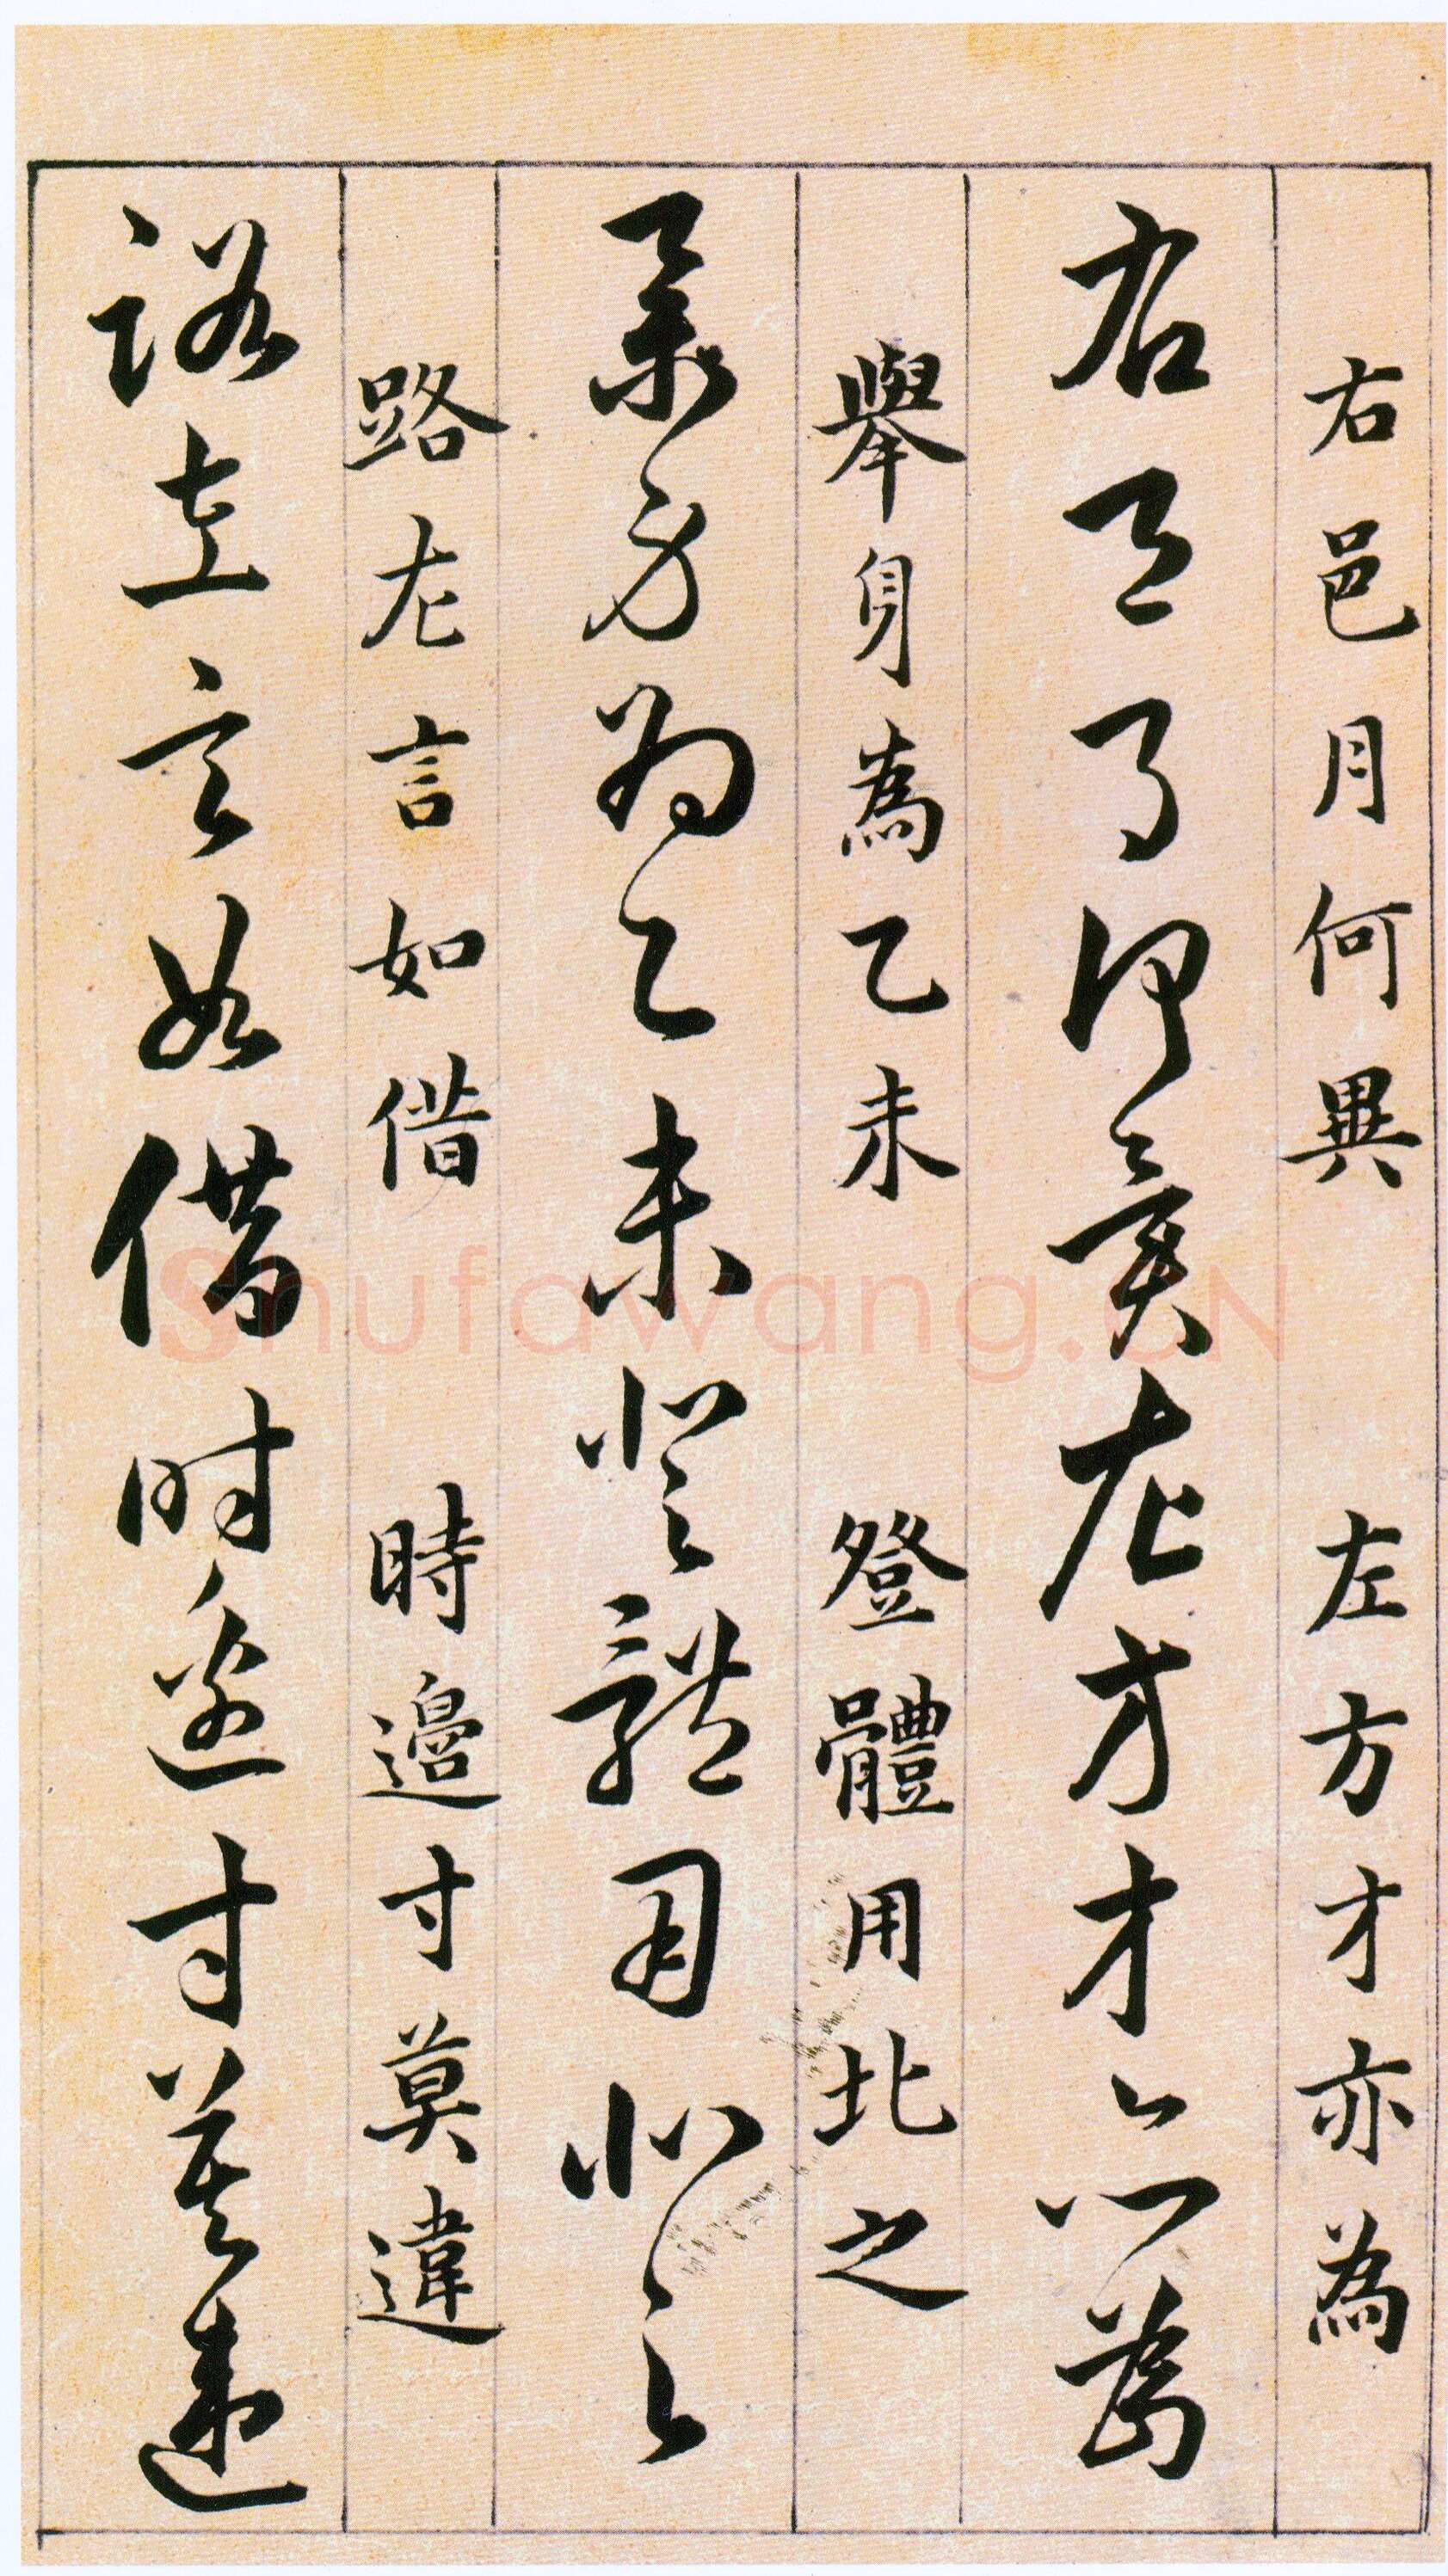 右邑月何異 左方才亦為
右邑月何異左方才亦為
舉身為乙未 登體用北之
舉身為乙未登體用北之
路左言如借 時邊寸莫違
路左言如借時邊寸莫違
Shufawang.CN